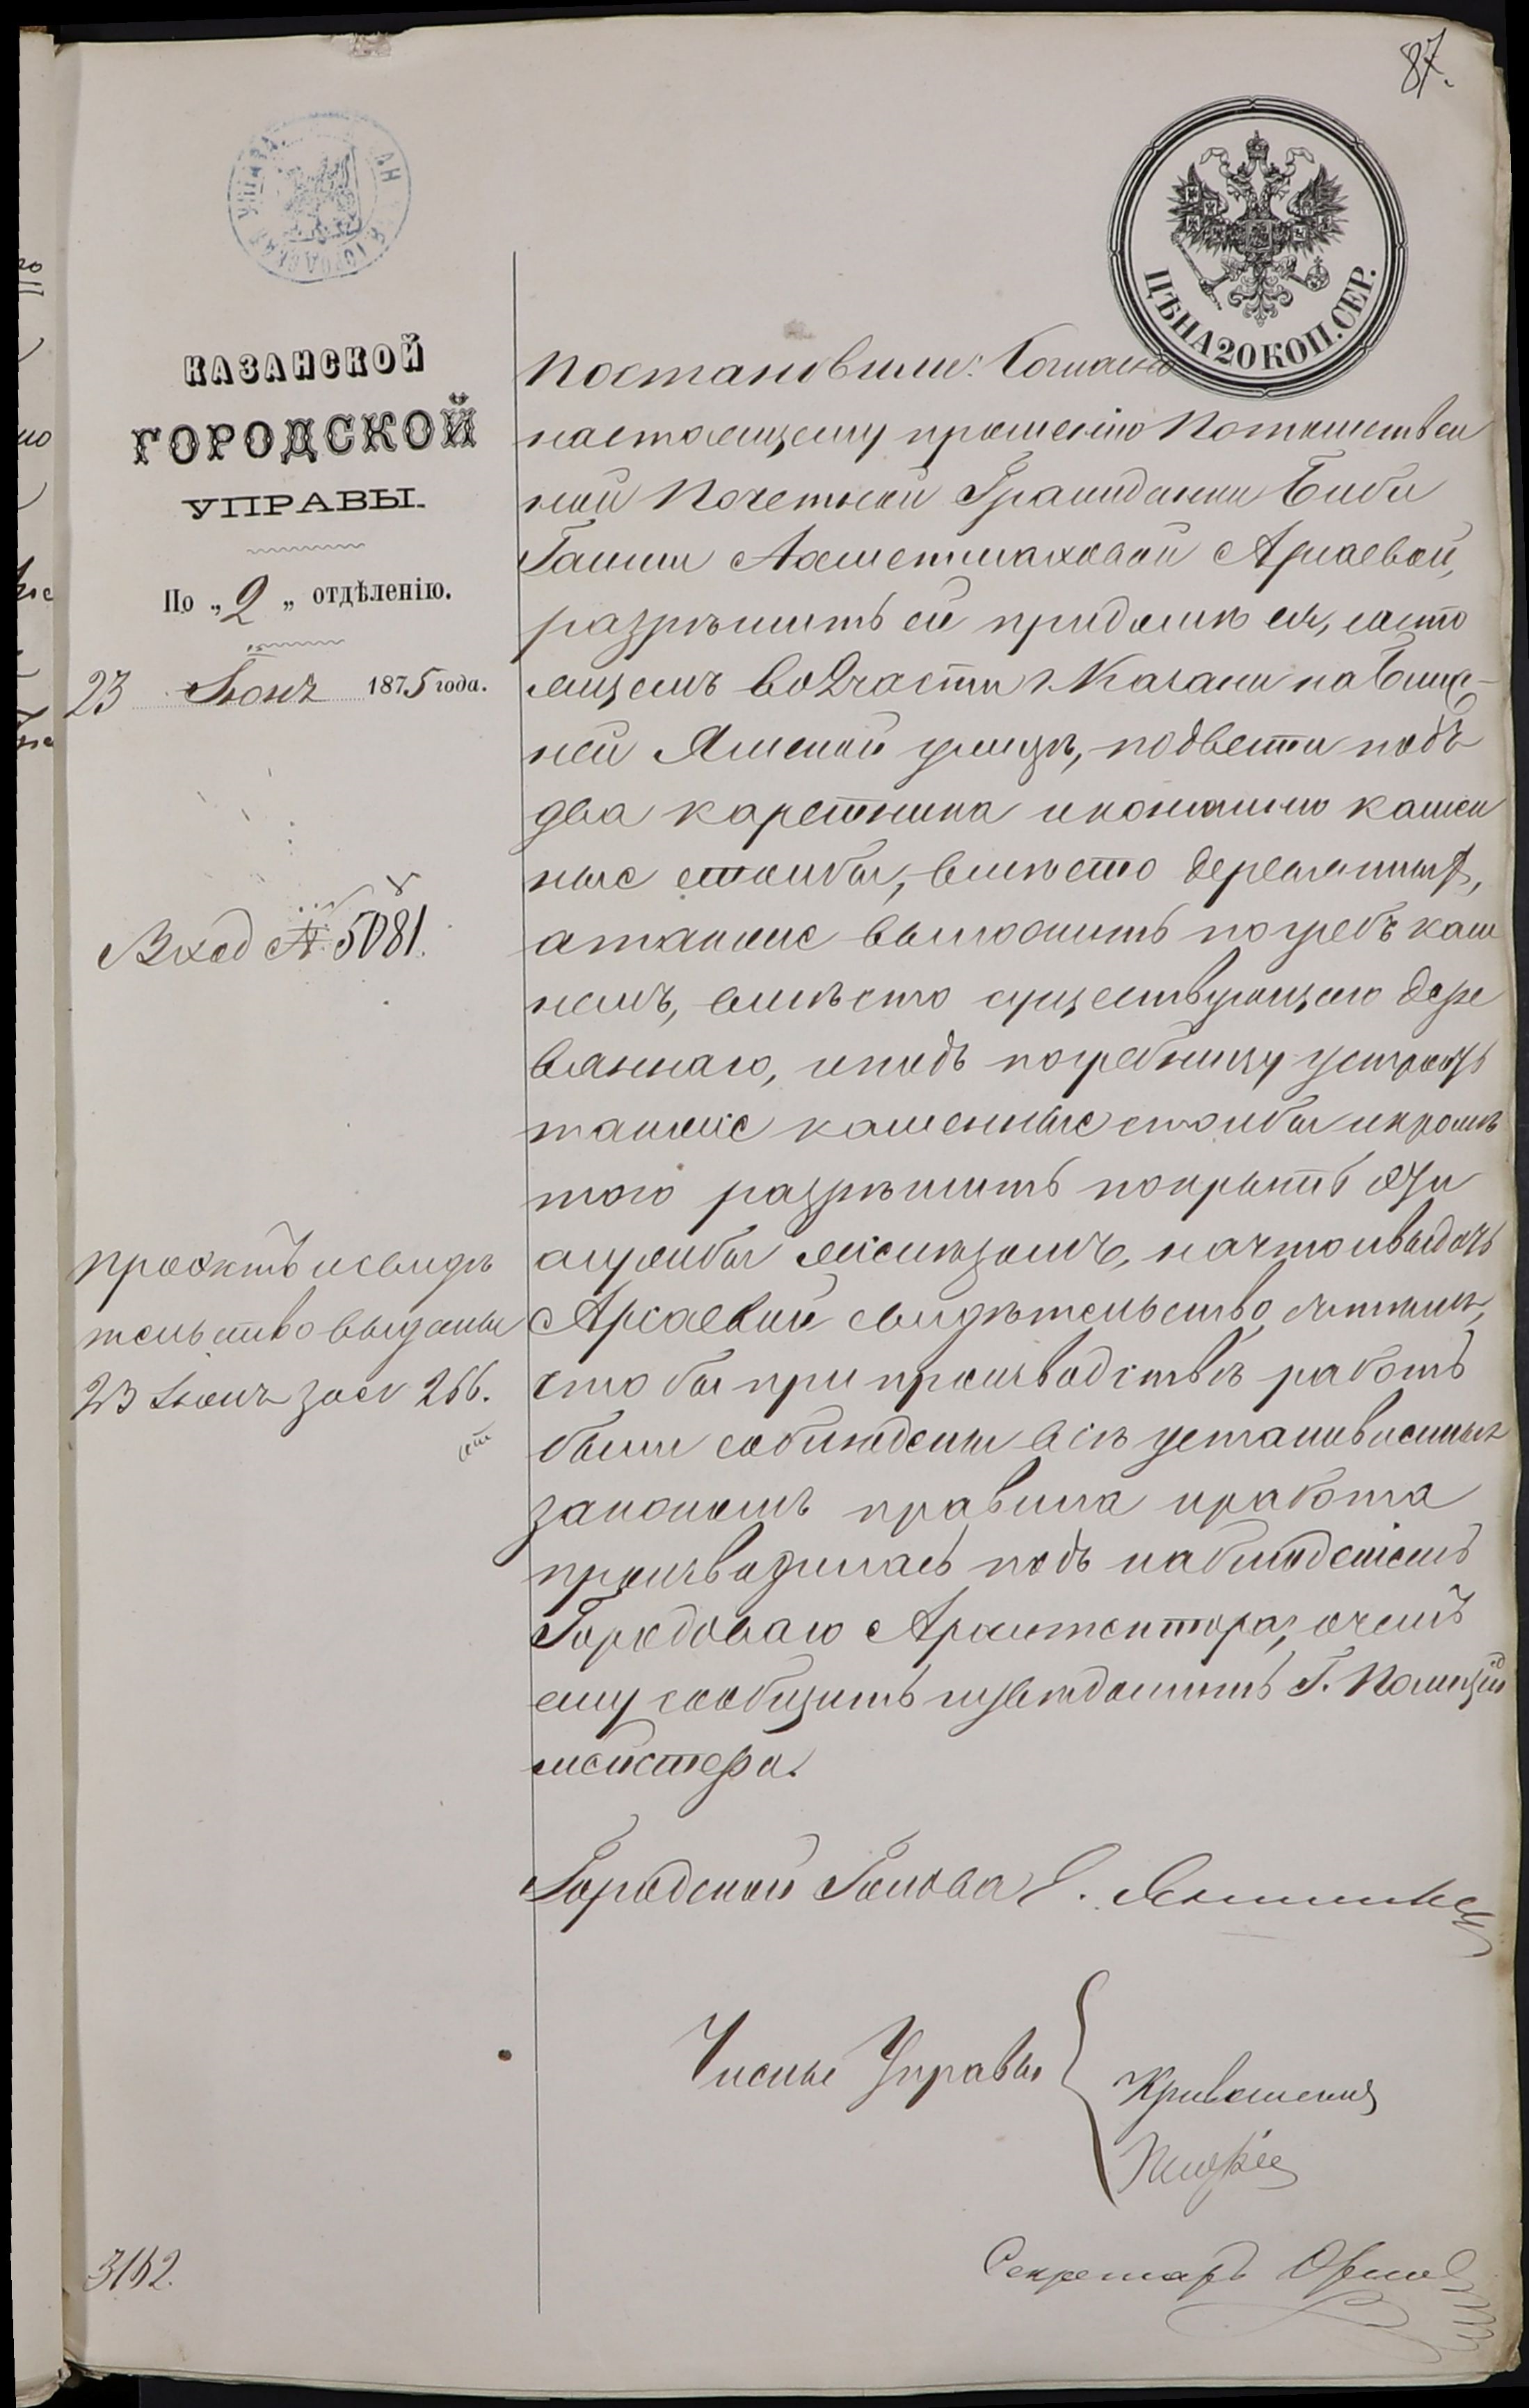 87.
ЦѢНА 20 КОП. СЕР.
КАЗАНСКОЙ
ГОРОДСКОЙ
УПРАВЫ.
По „2„ отдѣленію.
23 Іюня 1875 года.
Вход № 5081.
проэктъ и свидѣ
тельство выданы
23 Іюня за № 266.
3162.
Постановили: Согласно
настоящему прошенію Потомствен
ной Почетной Гражданки Биби
Ахметшаховой Арсаевой,
разрѣшить ей при домѣ ея, состо
ящемъ во 2 части г. Казани на Ближ-
ней Ямской улицѣ, подвести подъ
два каретника и конюшню камен
ные столбы, вмѣсто деревянныхъ,
а также выложить погребъ кам
немъ, вмѣсто существующаго дере
вяннаго, и подъ погребницу устроить
такіе же каменные столбы и кромѣ
того разрѣшить покрыть эти
службы желѣзомъ, на что и выдать
Арсаевой свидѣтельство, съ тѣмъ,
чтобы при производствѣ работъ
были соблюдены всѣ установленныя
закономъ правила и работа
производилась подъ наблюденіемъ
Городоваго Архитектора, о чемъ
ему сообщить и увѣдомить Г. Полицій
мейстера.
Городской Голова Е. Янишевск
Члены Управы
Секретарь